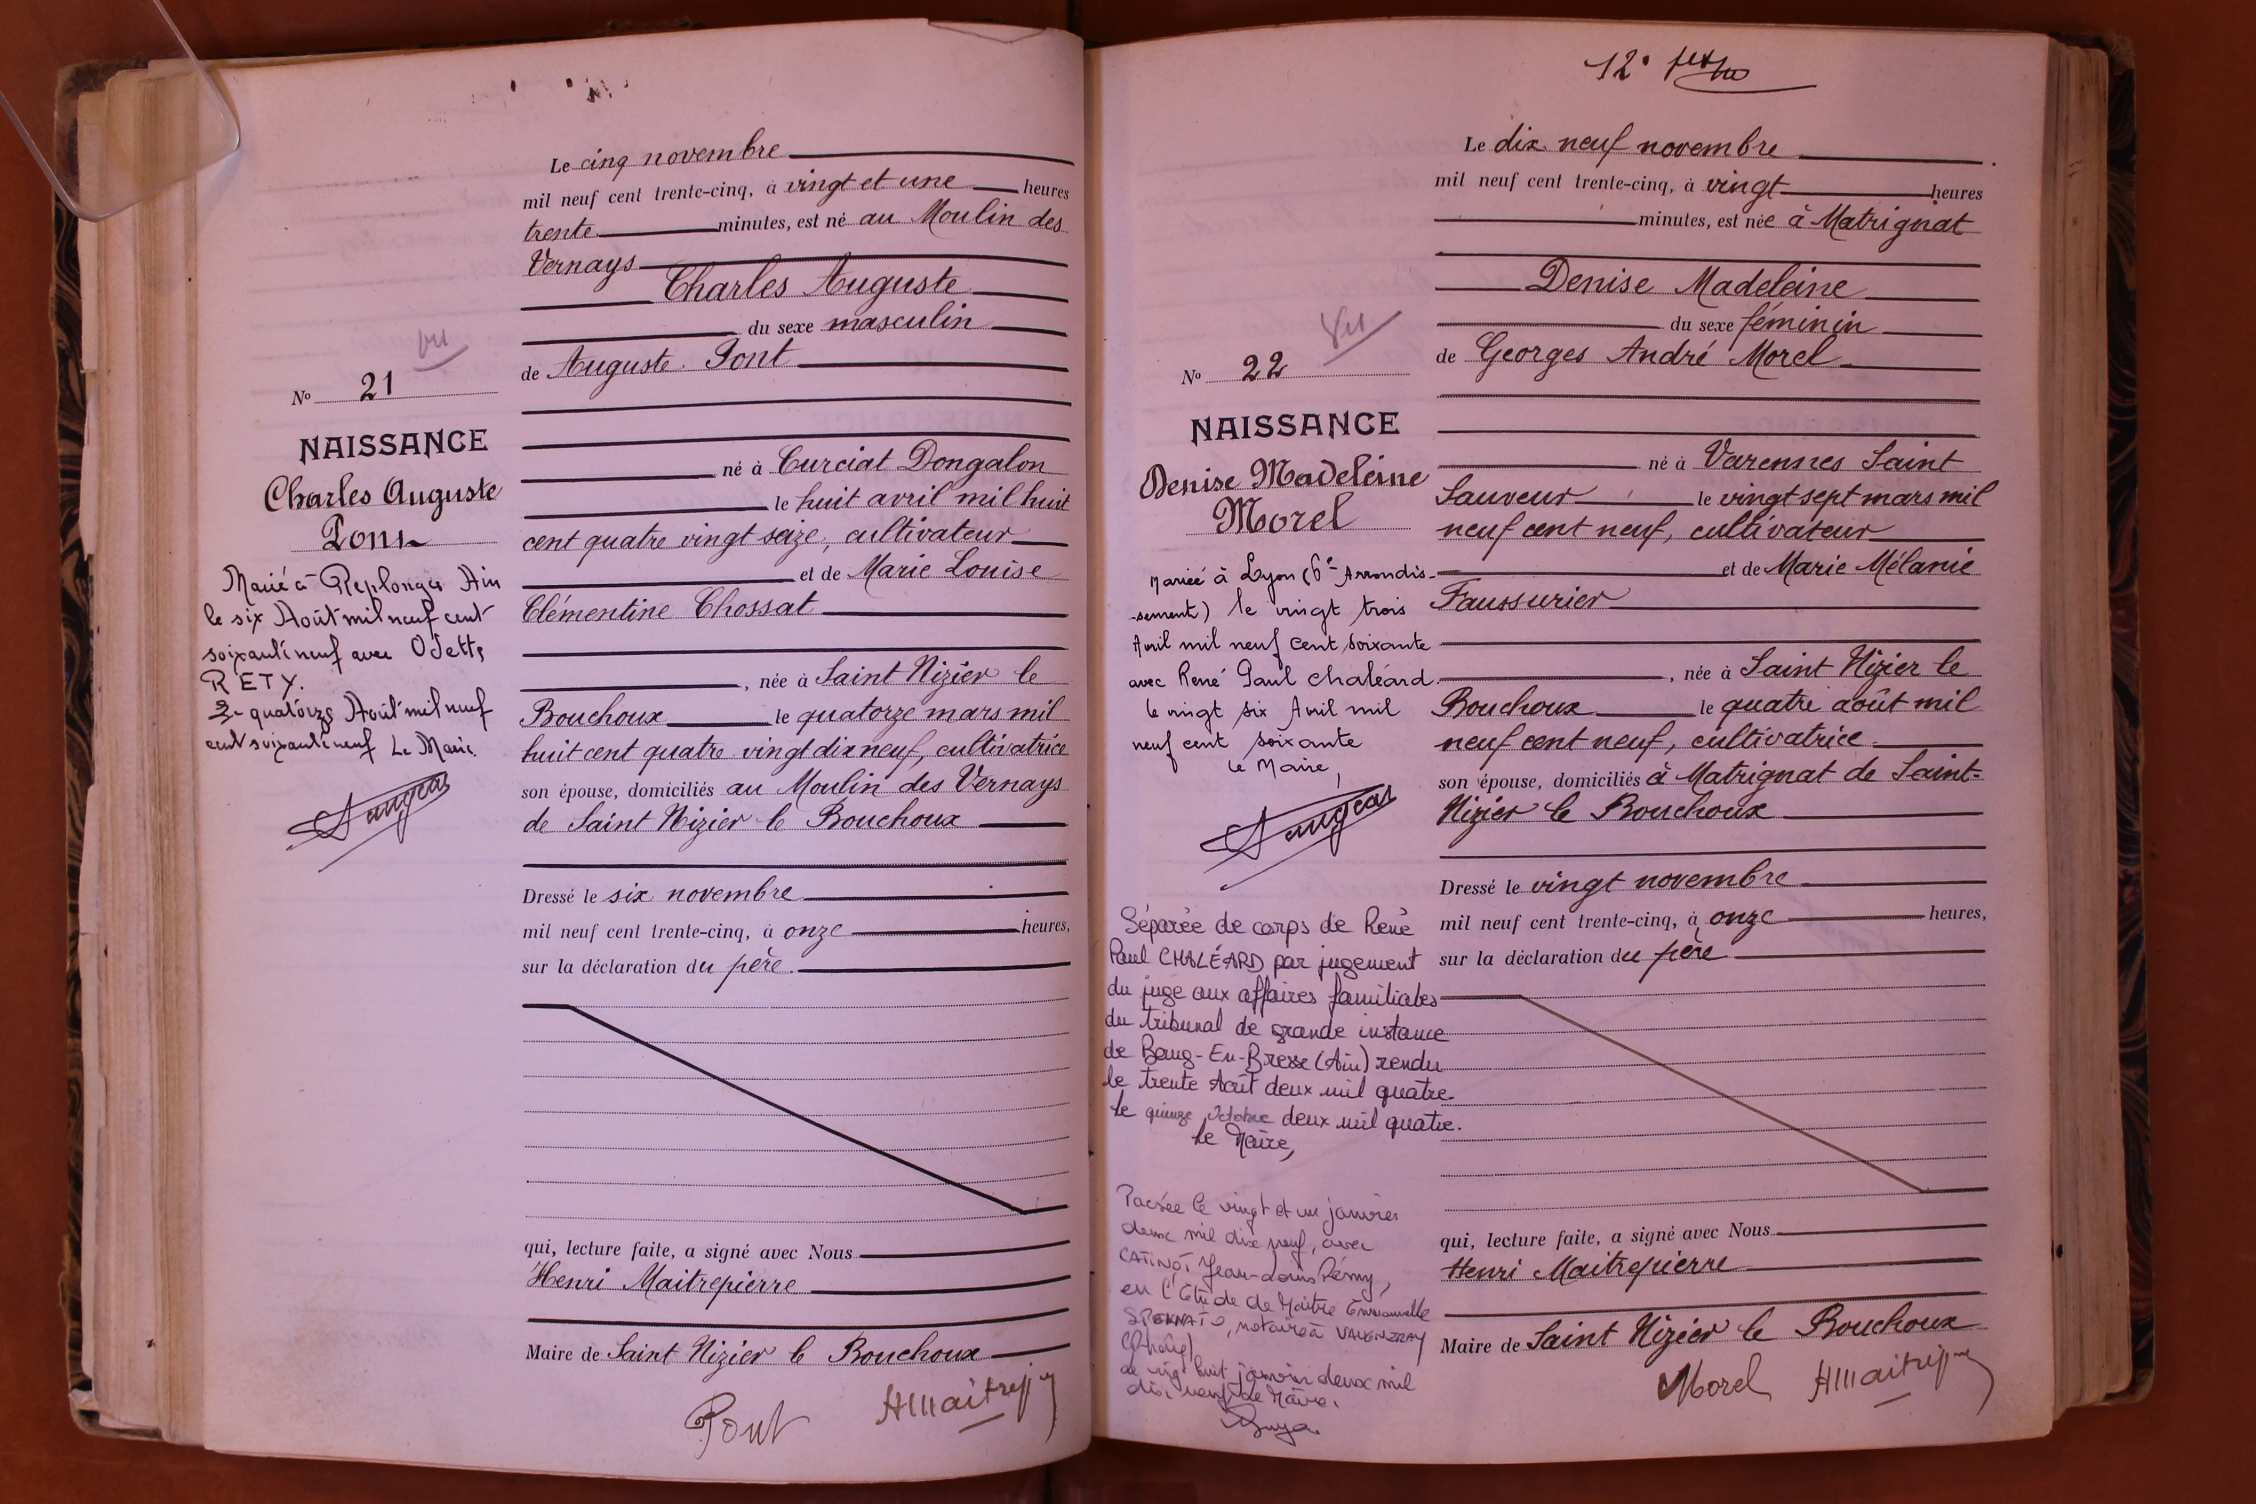 Le cinq novembre
mil neuf cent trente-cinq, à vingt et une heures
trente minutes, est né au Moulin des
Vernays
Charles Auguste
du sexe masculin
de Auguste Pont
né à Curciat Dongalon
le huit avril mil huit
cent quatre vingt seize, cultivateur
et de Marie Louise
Clémentine Chossat
, née à Saint Nizier le
Bouchoux le quatorze mars mil
huit cent quatre vingt dix neuf, cultivatrice
son épouse, domiciliés au Moulin des Vernays
de Saint Nizier le Bouchoux
Dressé le six novembre
mil neuf cent trente-cinq, à onze heures,
sur la déclaration du père.
qui, lecture faite, a signé avec Nous
Henri Maitrepierre
Maire de Saint Nizier le Bouchoux
Pont
vu
No 21
NAISSANCE
Charles Auguste
Marié à Replonges Ain
le six Août mil neuf cent
soixante neuf avec Odette
RETY.
quatorze Août mil neuf
cent soixante neuf Le Maire.
12e
Le dix neuf novembre
mil neuf cent trente-cinq, à vingt heures
minutes, est née à Matrignat
Denise Madeleine
du sexe féminin
de Georges André Morel
né à Varennes Saint
Sauveur le vingt sept mars mil
neuf cent neuf, cultivateur
et de Marie Mélanie
Faussurier
, née à Saint Nizier le
Bouchoux le quatre août mil
neuf cent neuf, cultivatrice
son épouse, domiciliés à Matrignat de Saint-
Nizier le Bouchoux
Dressé le vingt novembre
mil neuf cent trente-cinq, à onze heures,
sur la déclaration du père
qui, lecture faite, a signé avec Nous
Henri Maitrepierre
Maire de Saint Nizier le Bouchoux
Morel
Vu
No 22
NAISSANCE
Denise Madeleine
Morel
Mariée à Lyon (6e Arrondis-
-sement) le vingt trois
Avril mil neuf cent soixante
avec René Paul Chaléard
le vingt six Avril mil
neuf cent soixante
Le Maire,
Séparée de corps de René
Paul CHALÉARD par jugement
du juge aux affaires familiales
du tribunal de grande instance
de Bourg-En-Bresse (Ain) rendu
le trente Août deux mil quatre.
Le quinze octobre deux mil quatre.
Le Maire,
Pacsée le vingt et un janvier
deux mil dix neuf, avec
Jean-Louis Rémy,
en l'Etude de Maître Emmanuelle
notaire à
(Rhône)
Le vingt huit janvier deux mil
dix neuf Le Maire.